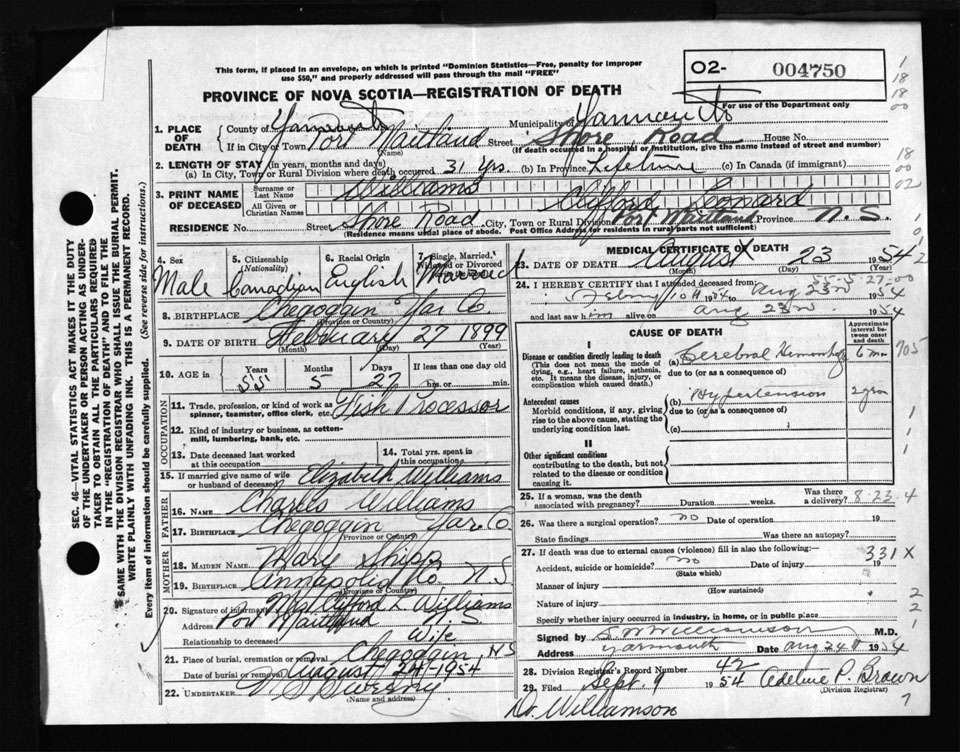 This form, if placed in an envelope, on which is printed "Dominion Statistics—Free, penalty for improper
use $50," and properly addressed will pass through the mail "FREE"
PROVINCE OF NOVA SCOTIA—REGISTRATION OF DEATH
O2- 004750
For use of the Department only
1. PLACE OF DEATH
County of Yarmouth Municipality of Yarmouth
If in City or Town Port Maitland (Name) Street Shore Road House No.
(If death occurred in a hospital or institution, give the name instead of street and number)
2. LENGTH OF STAY (in years, months and days)
(a) In City, Town or Rural Division where death occurred 31 Yrs. (b) In Province Lifetime (c) In Canada (if immigrant)
3. PRINT NAME OF DECEASED
Surname or Last Name Williams
All Given or Christian Names Clifford Leonard
RESIDENCE No. Street Shore Road City, Town or Rural Division Port Maitland Province N.S.
(Residence means usual place of abode. Post Office Address for residents in rural parts not sufficient)
4. Sex Male
5. Citizenship (Nationality) Canadian
6. Racial Origin English
7. Single, Married, Widowed or Divorced Married
8. BIRTHPLACE Chegoggin Yar Co.
(Province or Country)
9. DATE OF BIRTH February 27 1899
(Month) (Day) (Year)
10. AGE in Years 55 Months 5 Days 27 If less than one day old
hrs. or min.
OCCUPATION
11. Trade, profession, or kind of work as
spinner, teamster, office clerk, etc. Fish Processor
12. Kind of industry or business, as cotton-
mill, lumbering, bank, etc.
13. Date deceased last worked
at this occupation
14. Total yrs. spent in
this occupation
15. If married give name of wife
or husband of deceased Elizabeth Williams
FATHER
16. NAME Charles Williams
17. BIRTHPLACE Chegoggin Yar Co
(Province or Country)
MOTHER
18. MAIDEN NAME Mary Shipp
19. BIRTHPLACE Annapolis Co. N.S
(Province or Country)
20. Signature of informant Mrs Clifford L Williams
Address Port Maitland N.S.
Relationship to deceased Wife
21. Place of burial, cremation or removal Chegoggin, NS
Date of burial or removal August 24-1954
22. UNDERTAKER Sweeny
(Name and address)
MEDICAL CERTIFICATE OF DEATH
23. DATE OF DEATH August 23 1954
(Month) (Day)
24. I HEREBY CERTIFY that I attended deceased from
1954 to Aug 23rd 1954
and last saw him alive on Aug 23rd 1954
CAUSE OF DEATH
Approximate interval between onset and death
I
Disease or condition directly leading to death
(This does not mean the mode of
dying, e.g., heart failure, asthenia,
etc. It means the disease, injury, or
complication which caused death.)
(a) Cerebral Hemorrhage 6 mo 705
due to (or as a consequence of)
Antecedent causes
Morbid conditions, if any, giving
rise to the above cause, stating the
underlying condition last.
(b) Hypertension
due to (or as a consequence of)
(c)
II
Other significant conditions
contributing to the death, but not
related to the disease or condition
causing it.
25. If a woman, was the death
associated with pregnancy? Duration weeks. Was there
a delivery? 8-23-4
26. Was there a surgical operation? no Date of operation 19
State findings Was there an autopsy?
27. If death was due to external causes (violence) fill in also the following:— 331 X
Accident, suicide or homicide? no Date of injury 19
(State which)
Manner of injury
(How sustained)
Nature of injury
Specify whether injury occurred in industry, in home, or in public place
Signed by Williamson M.D.
Address Yarmouth Date Aug 24th 1954
28. Division Registrar's Record Number 42
29. Filed Sept. 9 1954 Adeline P. Brown
(Division Registrar)
Dr. Williamson
SEC. 46—VITAL STATISTICS ACT MAKES IT THE DUTY
OF THE UNDERTAKER OR PERSON ACTING AS UNDER-
TAKER TO OBTAIN ALL THE PARTICULARS REQUIRED
IN THE "REGISTRATION OF DEATH" AND TO FILE THE
SAME WITH THE DIVISION REGISTRAR WHO SHALL ISSUE THE BURIAL PERMIT.
WRITE PLAINLY WITH UNFADING INK. THIS IS A PERMANENT RECORD.
Every item of information should be carefully supplied. (See reverse side for instructions.)